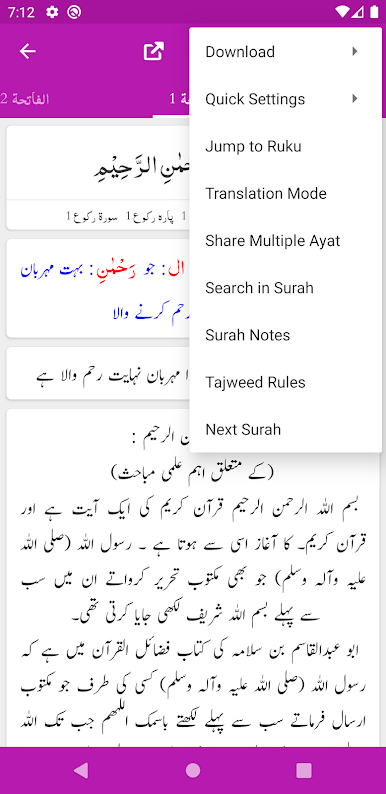 7:12
Download
Quick Settings
Jump to Ruku
Translation Mode
Share Multiple Ayat
Search in Surah
Surah Notes
Tajweed Rules
Next Surah
الفاتحة 2
1
الرَّحِیْمِ
پارہ رکوع 1 سورۃ رکوع 1
ال : جو رَحْمٰنِ : بہت مہربان
رحم کرنے والا
مہربان نہایت رحم والا ہے
الرحیم :
(کے متعلق اہم علمی مباحث)
بسم اللہ الرحمن الرحیم قرآن کریم کی ایک آیت ہے اور
قرآن کریم۔ کا آغاز اسی سے ہوتا ہے ۔ رسول اللہ (صلی اللہ
علیہ وآلہ وسلم) جو بھی مکتوب تحریر کرواتے ان میں سب
سے پہلے بسم اللہ شریف لکھی جایا کرتی تھی۔
ابو عبدالقاسم بن سلامہ کی کتاب فضائل القرآن میں ہے کہ
رسول اللہ (صلی اللہ علیہ وآلہ وسلم) کسی کی طرف جو مکتوب
ارسال فرماتے سب سے پہلے لکھتے باسمک اللھم جب تک اللہ